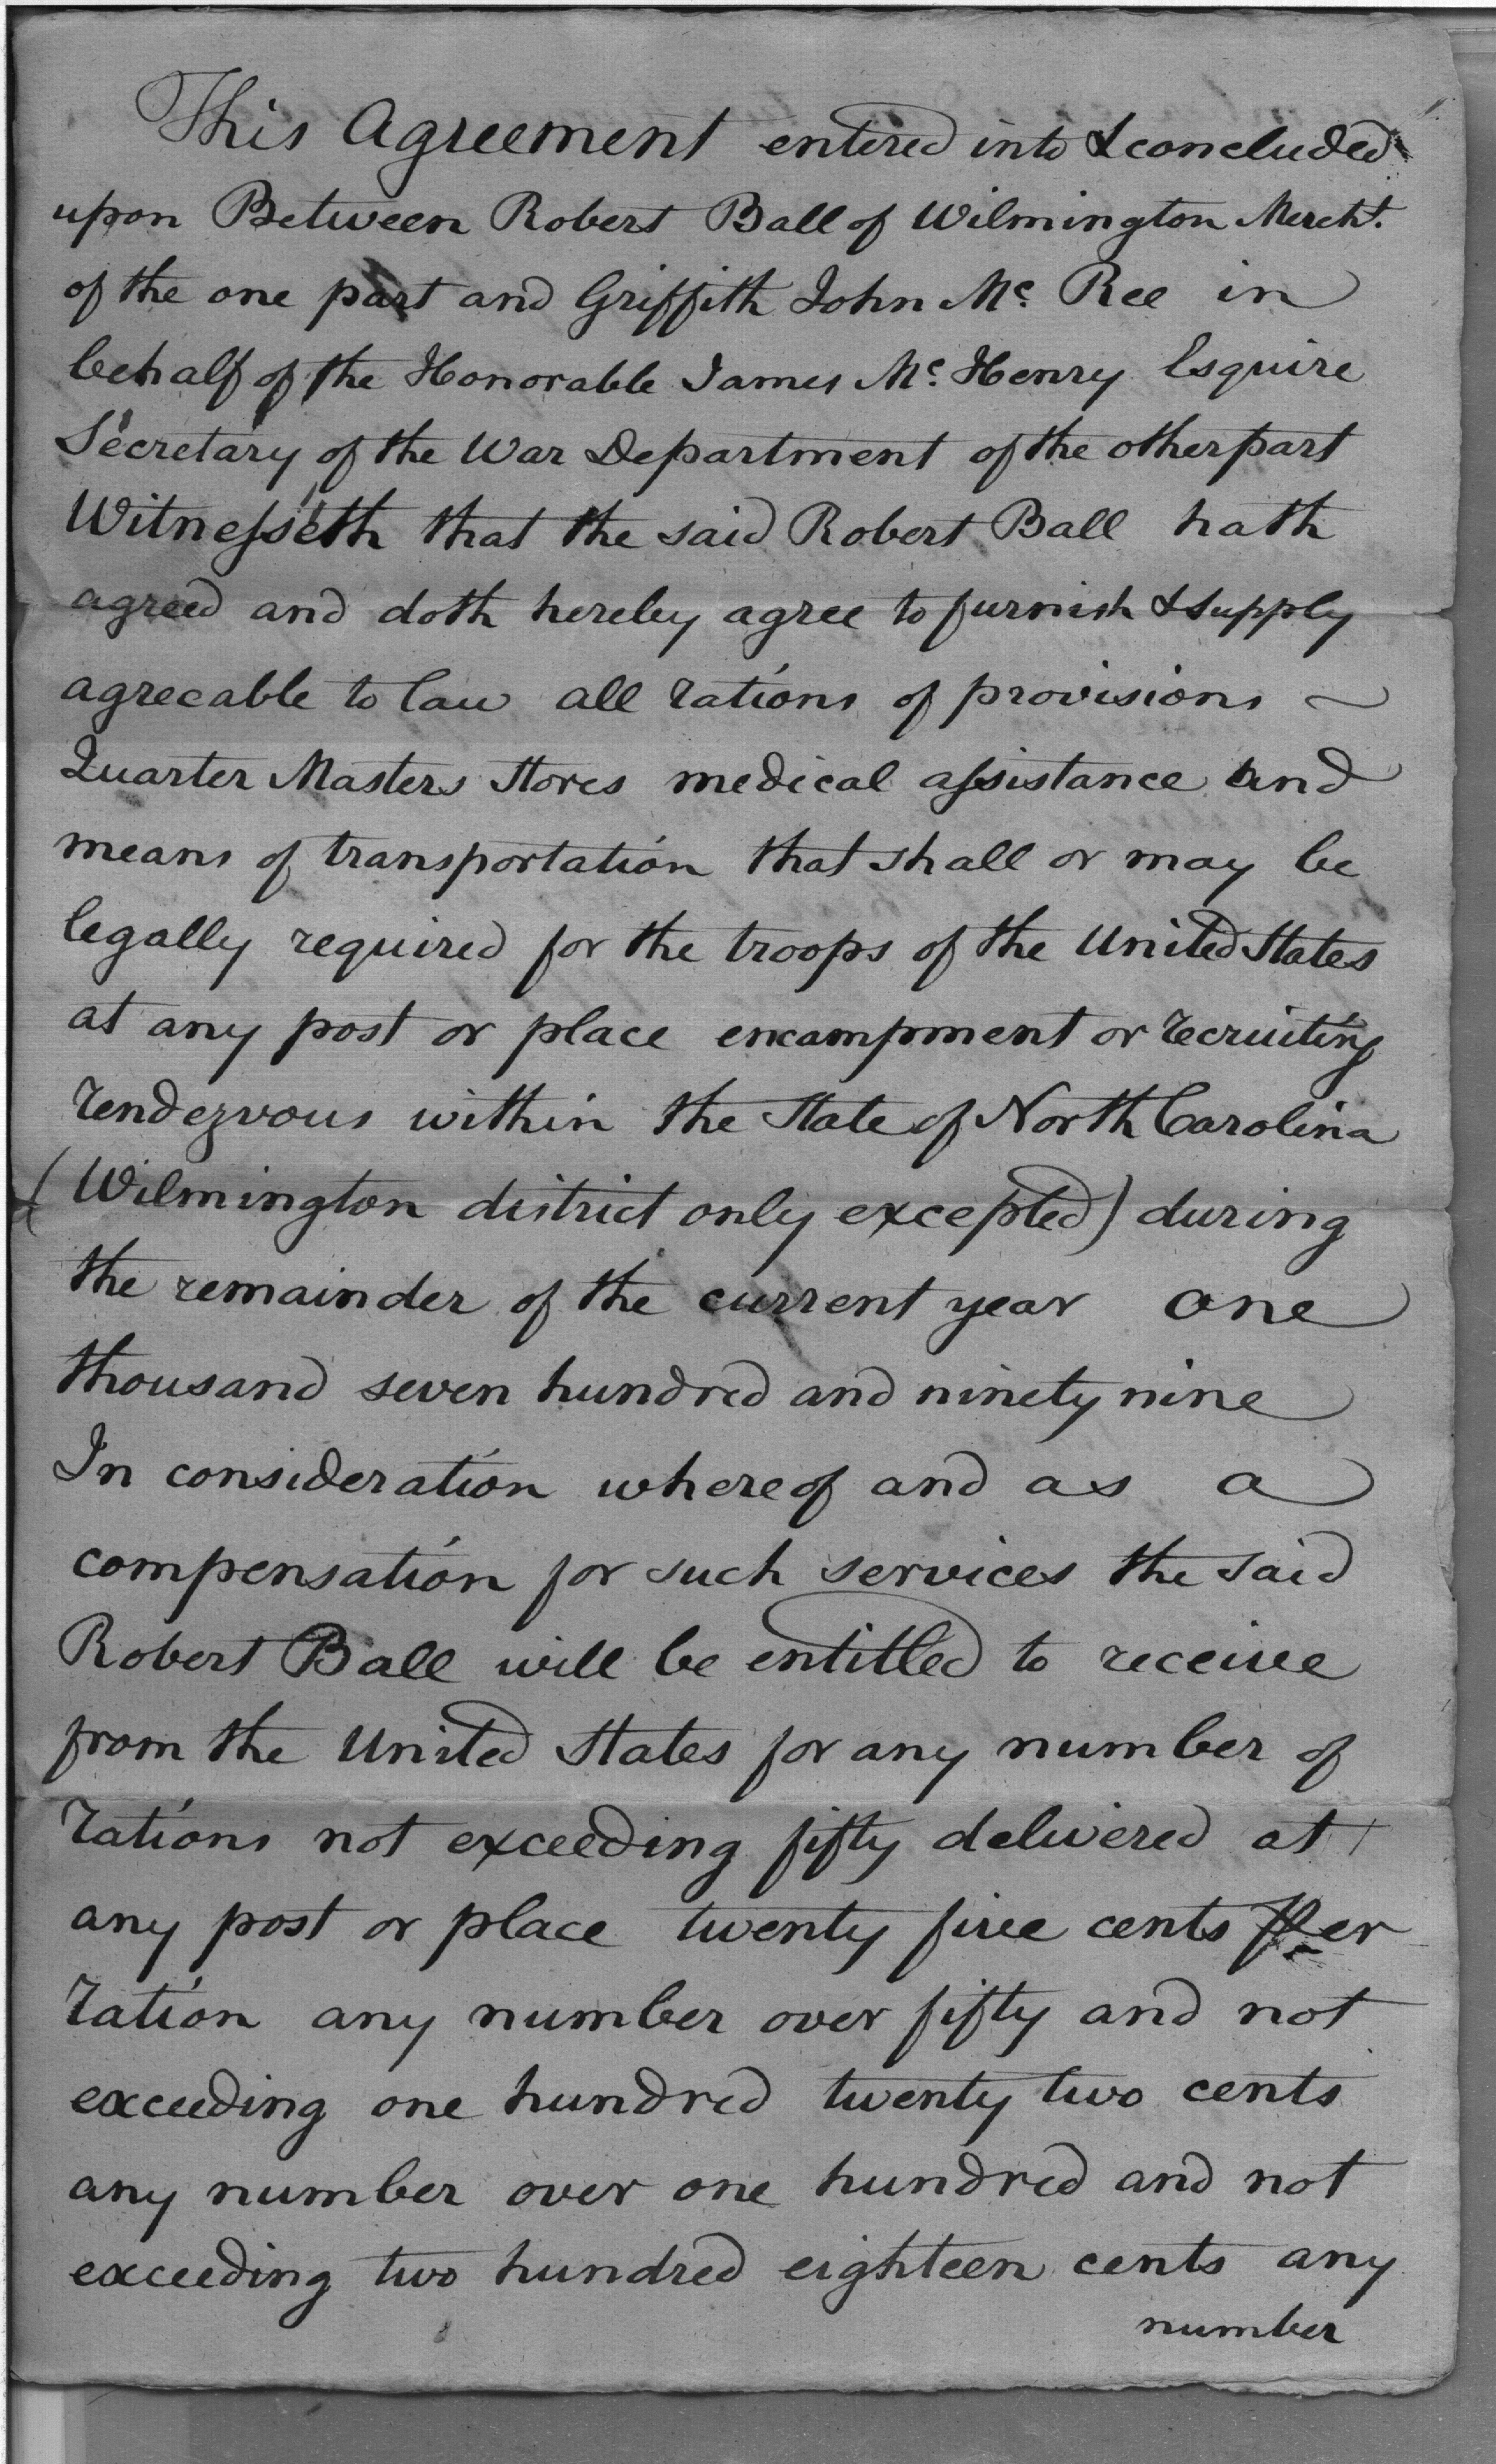 This Agreement entered into & concluded
upon Between Robert Ball of Wilmington Mercht.
of the one part and Griffith John Mc. Ree in
behalf of the Honorable James Mc. Henry Esquire
Secretary of the War Department of the other part
Witnesseth that the said Robert Ball hath
agreed and doth hereby agree to furnish & supply
agreeable to law all rations of provisions ~
Quarter Masters Stores medical assistance and
means of transportation that shall or may be
legally required for the troops of the United States
at any post or place encampment or recruiting
rendezvous within the State of North Carolina
(Wilmington district only excepted) during
the remainder of the current year one
thousand seven hundred and ninety nine
In consideration whereof and as a
compensation for such services the said
Robert Ball will be entitled to receive
from the United States for any number of
rations not exceeding fifty delivered at
any post or place twenty five cents per
ration any number over fifty and not
exceeding one hundred twenty two cents
any number over one hundred and not
exceeding two hundred eighteen cents any
number